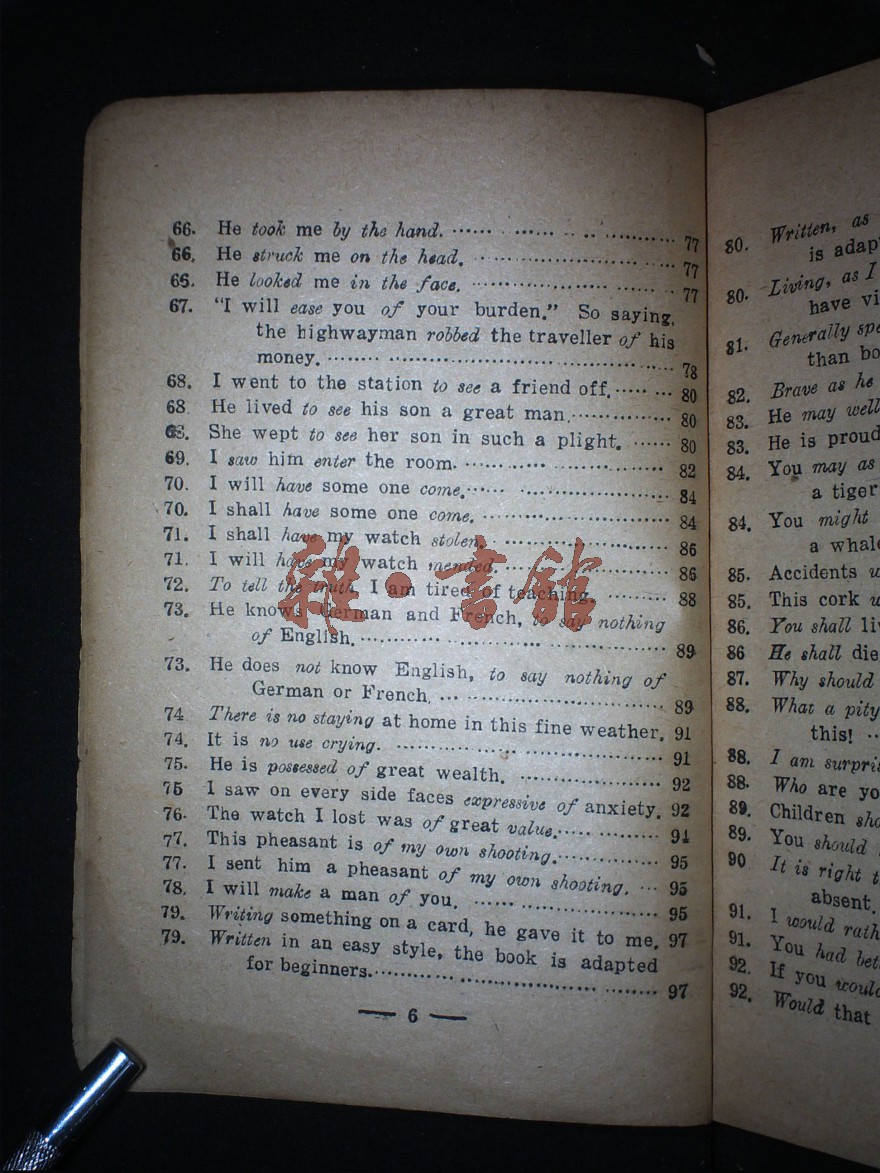 66. He took me by the hand. 77
66. He struck me on the head. 77
66. He looked me in the face. 77
67. "I will ease you of your burden." So saying,
the highwayman robbed the traveller of his
money. 78
68. I went to the station to see a friend off. 80
68 He lived to see his son a great man. 80
68. She wept to see her son in such a plight. 80
69. I saw him enter the room. 82
70. I will have some one come. 84
70. I shall have some one come. 84
71. I shall have my watch stolen. 86
71. I will have my watch mended. 86
72. To tell the truth, I am tired of teaching. 88
73. He knows German and French, to say nothing
of English. 89
73. He does not know English, to say nothing of
German or French. 89
74 There is no staying at home in this fine weather. 91
74. It is no use crying. 91
75. He is possessed of great wealth. 92
75 I saw on every side faces expressive of anxiety. 92
76. The watch I lost was of great value. 94
77. This pheasant is of my own shooting. 95
77. I sent him a pheasant of my own shooting. 95
78. I will make a man of you. 95
79. Writing something on a card, he gave it to me. 97
79. Written in an easy style, the book is adapted
for beginners. 97
— 6 —
80. Written, as
is adap
80. Living, as I
have vi
81. Generally spe
than bo
82. Brave as he
83. He may well
83. He is proud
84. You may as
a tiger
84. You might
a whale
85. Accidents
85. This cork
86. You shall li
86 He shall die
87. Why should
88. What a pity
this!
88. I am surpris
88. Who are yo
89. Children sho
89. You should
90 It is right t
absent.
91. I would rath
91. You had bet
92. If you would
92. Would that
雜·書館